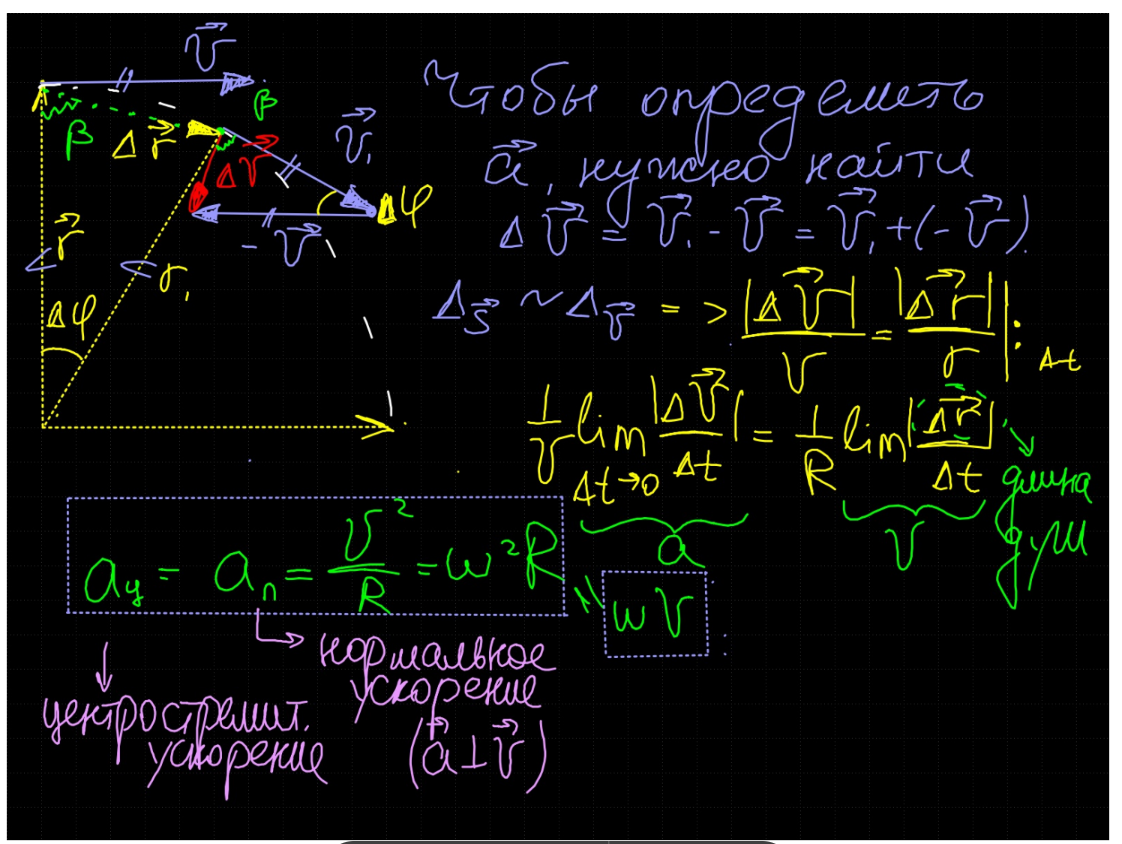 v⃗
β
β
Δr⃗
v⃗₁
Δv⃗
Δφ
-v⃗
r⃗
r₁
Δφ
Чтобы определить
a⃗, нужно найти
Δv⃗ = v⃗₁ - v⃗ = v⃗₁ + (-v⃗).
Δ_s⃗ ~ Δ_v⃗ => |Δv⃗|/v = |Δr⃗|/r |: Δt
1/v lim Δt→0 |Δv⃗/Δt| = 1/R lim |Δr⃗/Δt|
длина
дуги
a
v
aц = aₙ = v²/R = ω²R
= ωv
нормальное
ускорение
(a⃗ ⊥ v⃗)
центростремит.
ускорение